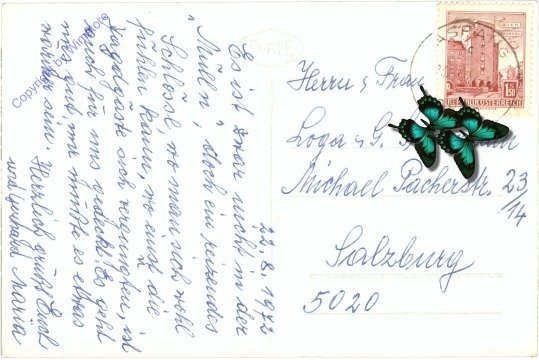 22.8.1972
Es ist zwar nicht in der
"Mülln", doch ein reizendes
Schlössl, wo man sich wohl
fühlen kann, wo einst die
Jagdgäste sich vergnügten, ist
auch für uns gedeckt! Es geht
mir gut, nur müßte es etwas
wärmer sein. Herzlich grüßt Euch
Maria
Herrn u. Frau
Loga u. G.
Michael Pacherstr. 23/14
Salzburg
5020
1.50
REPUBLIK ÖSTERREICH
Copyright by Wimpore